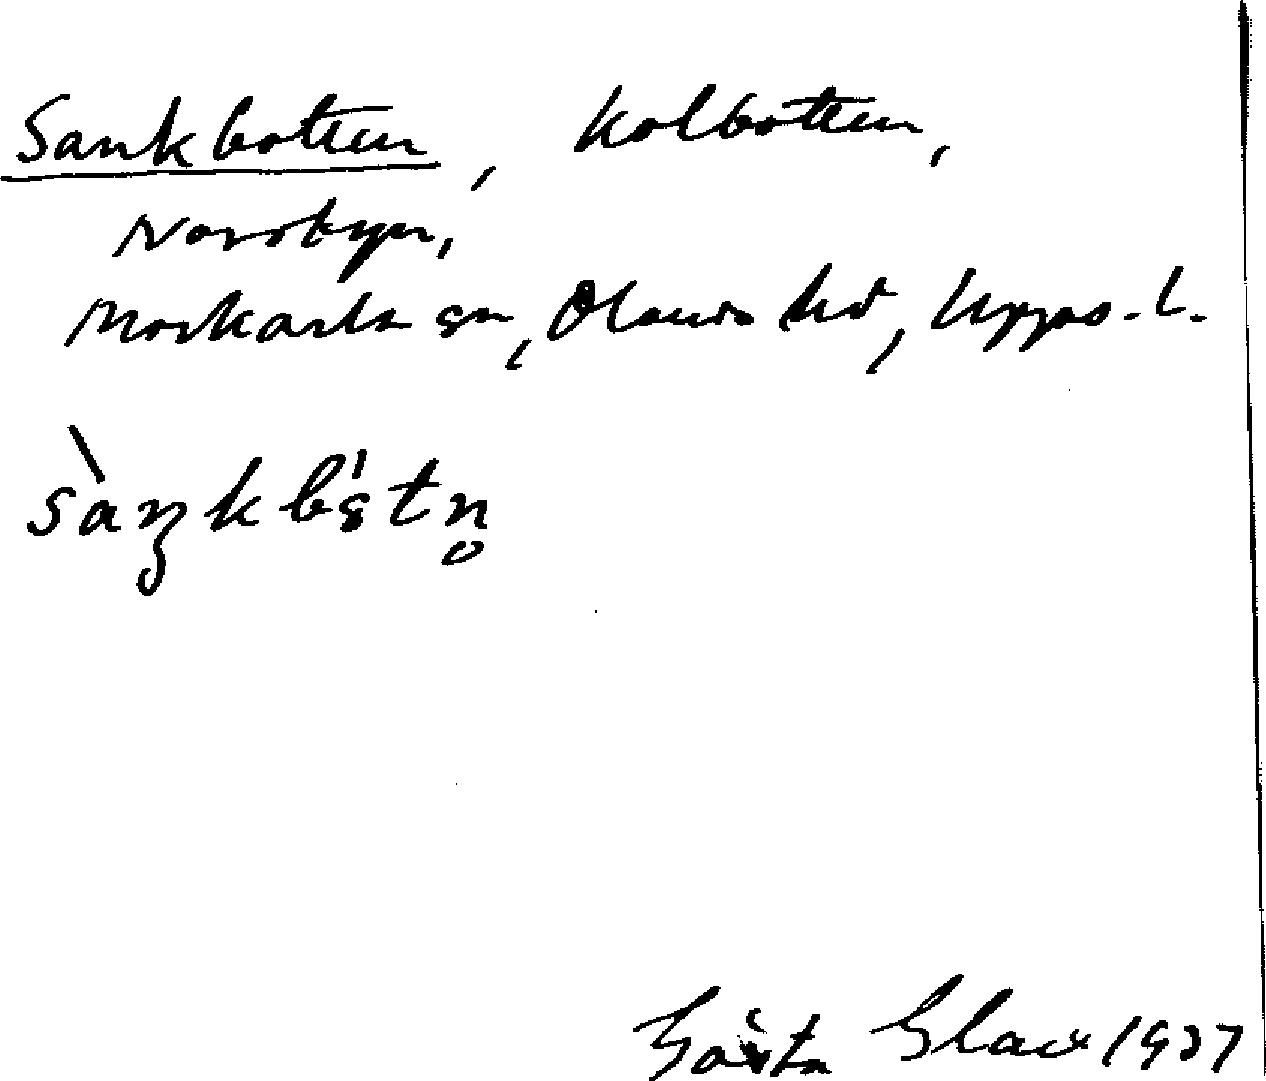 Sankbotten, Kolbotten,
Norrbyn,
Morkarla sn, Olands hd, Upps. l.
Gösta Glan 1937